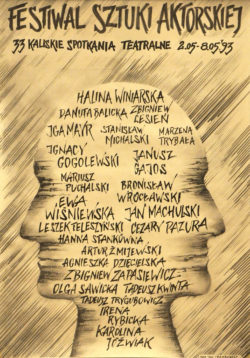 FESTIWAL SZTUKI AKTORSKIEJ
33 KALISKIE SPOTKANIA TEATRALNE 2.05-8.05'93
HALINA WINIARSKA
DANUTA BALICKA ZBIGNIEW LESIEŃ
IGA MAYR STANISŁAW MICHALSKI MARZENA TRYBAŁA
IGNACY GOGOLEWSKI JANUSZ GAJOS
MARIUSZ PUCHALSKI BRONISŁAW WROCŁAWSKI
EWA WIŚNIEWSKA JAN MACHULSKI
LESZEK TELESZYŃSKI CEZARY PAZURA
HANNA STANKÓWNA
ARTUR ŻMIJEWSKI
AGNIESZKA DZIĘCIELSKA
ZBIGNIEW ZAPASIEWICZ
OLGA SAWICKA TADEUSZ KWINTA
TADEUSZ TRYGUBOWICZ
IRENA RYBICKA
KAROLINA JÓŹWIAK